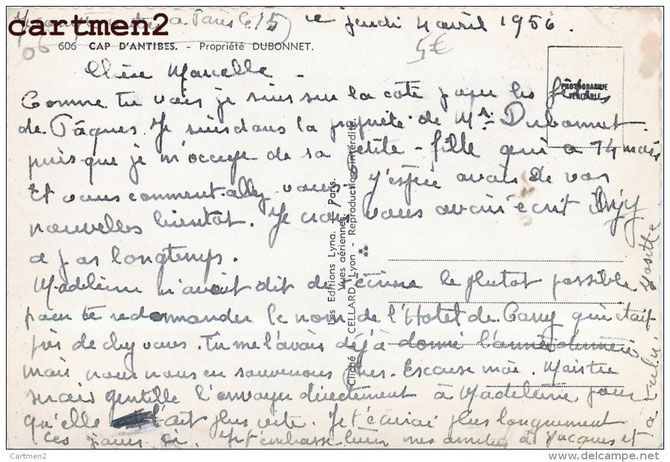 cartmen2
à Paris le jeudi 4 avril 1956.
06
5€
606 CAP D'ANTIBES. - Propriété DUBONNET.
PHOTOGRAPHIE VÉRITABLE
Chère Marcelle -
Comme tu vois je suis sur la cote pour les fêtes
de Pâques. Je suis dans la propriété de Mr Dubonnet
puisque je m'occupe de sa petite-fille qui a 14 mois
Et vous comment allez vous j'espère avoir de vos
nouvelles bientot. Je crois vous avoir écrit
a pas longtemps.
Madeleine m'avait dit de t'écrire le plutot possible
pour te redemander le nom de l'Hotel de qui était
près de chez vous. Tu me l'avais déjà donné l'année dernière
mais nous nous en souvenons Excuse moi.
serais gentille l'envoyer directement à Madeleine pour
qu'elle l'ait plus vite. Je t'écrirai plus longuement
ces jours ci. Je t'embrasse bien mes amitiés à Jacques et
à
Les Editions Lyna. - Paris.
Vues aériennes
Cliché CELLARD - Lyon - Reproduction interdite.
delcampe.net
Cartmen2